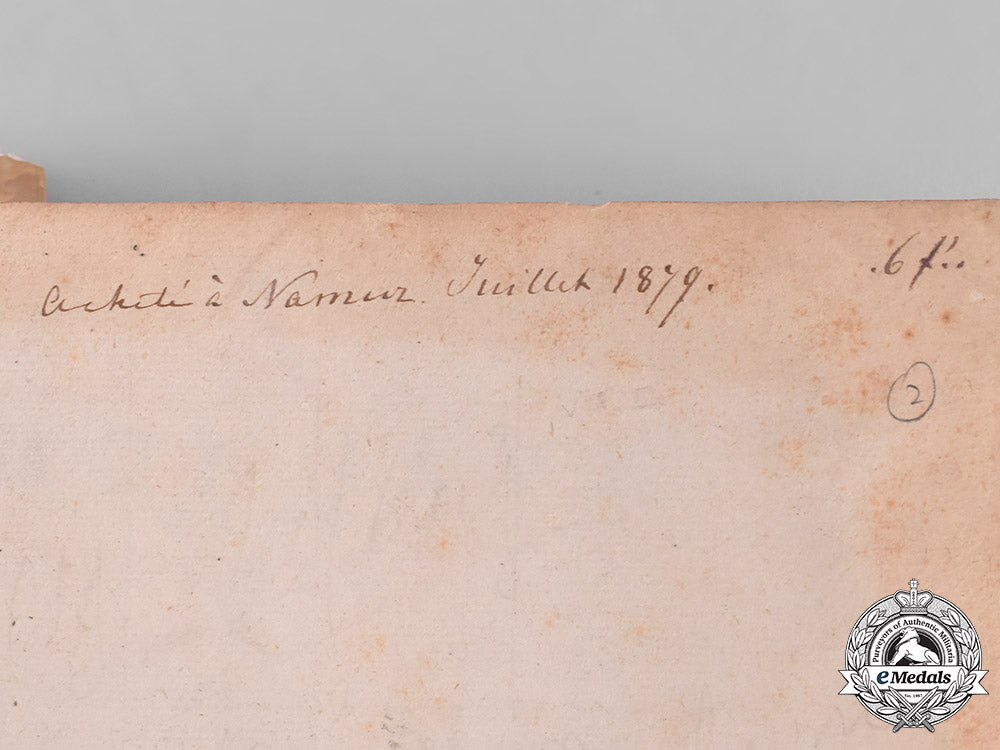 Acheté à Namur. Juillet 1879.
.6 f..
2
Purveyors of Authentic Militaria
eMedals
Est. 1967